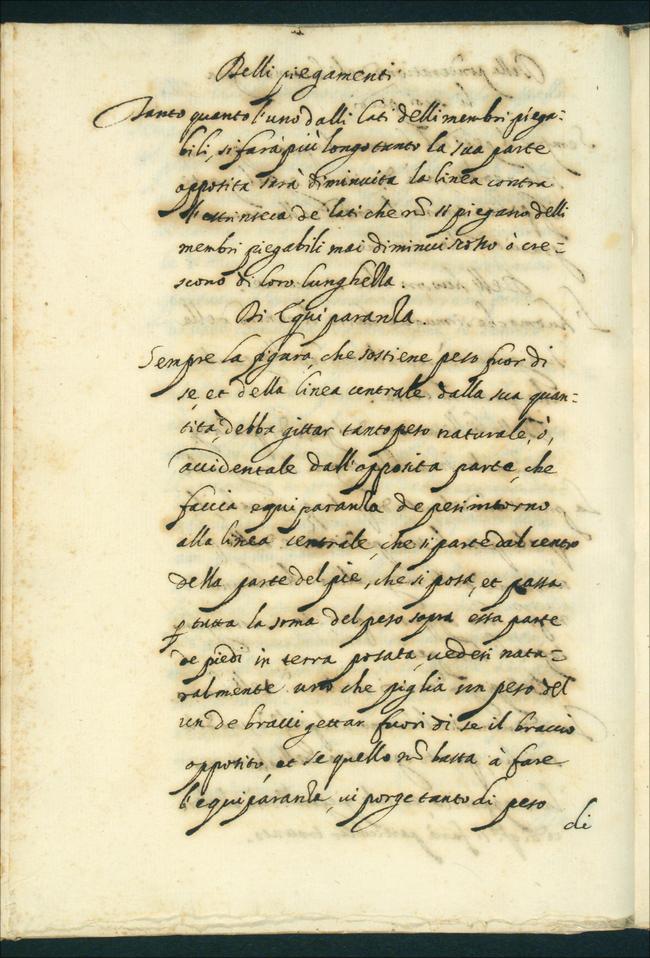 Delli piegamenti
Tanto quanto l'uno dalli lati delli membri piega-
bili, si farà più longo tanto la sua parte
opposita sarà diminuita la linea contra
l'estrinseca de lati che nõ si piegano delli
membri piegabili mai diminuiscono ò cre-
scono di loro lunghezza.
Di Equiparanza
Sempre la figura, che sostiene peso fuor di
se, et della linea centrale dalla sua quan-
tità, debba gittar tanto peso naturale, ò,
accidentale dall'opposita parte, che
faccia equiparanza de pesi intorno
alla linea centrale, che si parte dal centro
della parte del piè, che si posa, et passa
ꝑ tutta la soma del peso sopra essa parte
de piedi in terra posata, vedesi natu-
ralmente uno che piglia un peso del
un de bracci gettar fuori di se il braccio
opposito, et se quello nõ basta à fare
l'equiparanza, vi porge tanto di peso
di